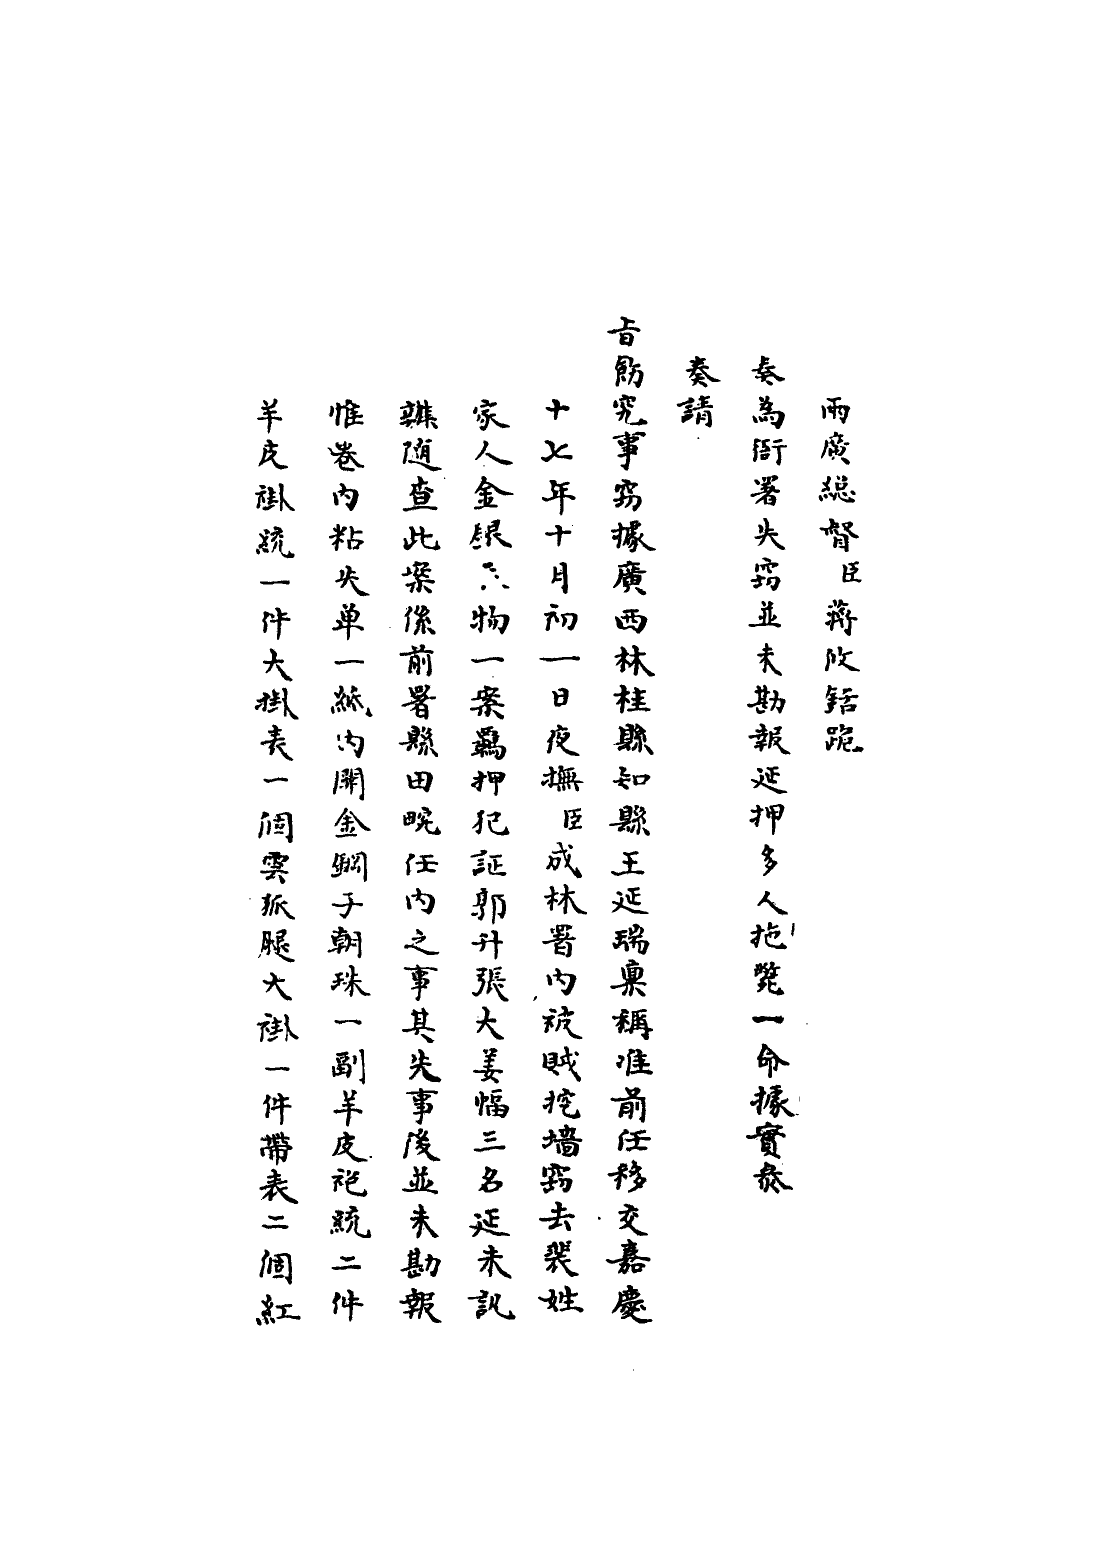 兩廣總督臣蔣攸銛跪
奏為衙署失竊並未勘報延押多人拖斃一命據實叅
奏請
旨飭究事竊據廣西林桂縣知縣王延瑞稟稱准前任移交嘉慶
十七年十月初一日夜撫臣成林署內被賊挖墻竊去裴姓
家人金銀物一案羈押犯証郭升張大姜幅三名延未訊
辦随查此案係前署縣田畹任內之事其失事後並未勘報
惟卷內粘失单一紙內開金鐲子朝珠一副羊皮袍統二件
羊皮褂統一件大掛表一個雲狐腿大褂一件帶表二個紅